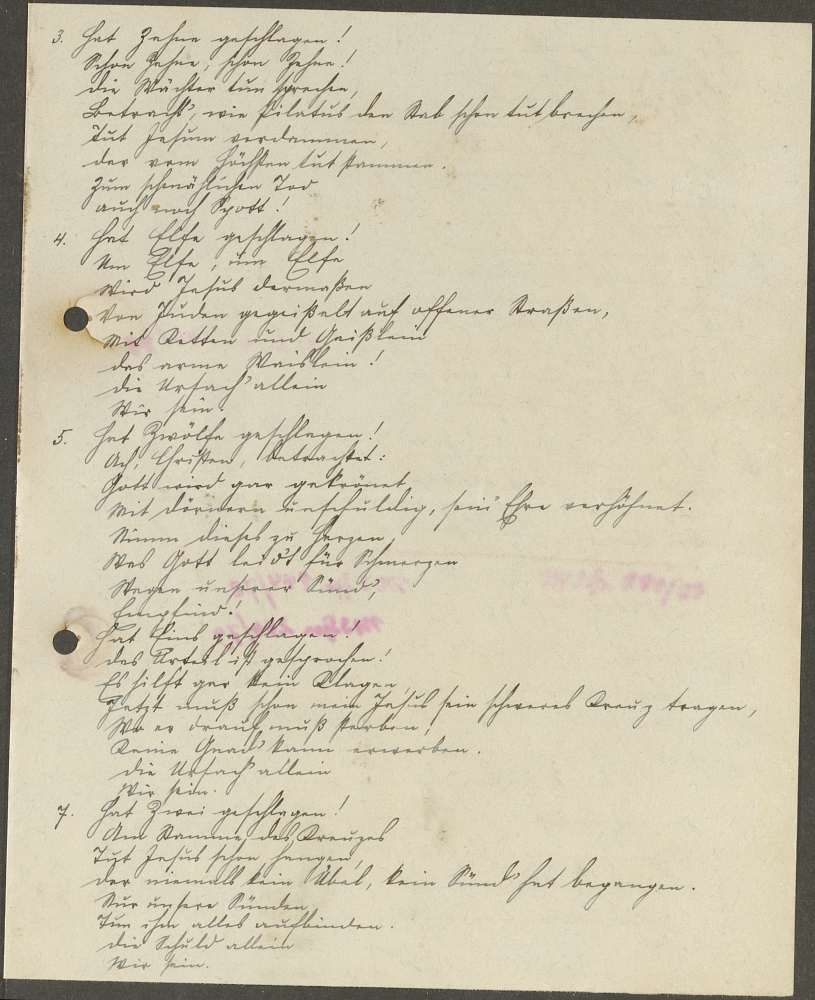 3. Hat Zehne geschlagen!
Schon Zehne, schon Zehne!
Die Wächter tun sprechen,
Betracht', wie Pilatus den Stab schon tut brechen,
Tut Jesum verdammen,
Der vom Höchsten tut stammen.
Zum schmählichen Tod
auch noch Spott!
4. Hat Elfe geschlagen!
Um Elfe, um Elfe
Wird Jesus dermaßen
Von Juden gegeißelt auf offener Straßen,
Mit Ketten und Geißlein
das arme Waislein!
Die Ursach' allein
Wir sein.
5. Hat Zwölfe geschlagen!
Ach, Christen, betrachtet:
Gott wird gar gekrönet
Mit Dörnern unschuldig, sein' Ehre verhöhnet.
Nimm dieses zu Herzen,
Was Gott leidt für Schmerzen
Wegen unserer Sünd',
Empfind'!
Hat Eins geschlagen!
Das Urteil ist gesprochen!
Es hilft gar kein Klagen,
Jetzt muß schon mein Jesus sein schweres Kreuz tragen,
Wo er drauf muß sterben,
Keine Gnad' kann erwerben.
Die Ursach' allein
Wir sein.
7. Hat Zwei geschlagen!
Am Stamme des Kreuzes
Tut Jesus schon hangen,
Der niemals kein Übel, kein Sünd' hat begangen.
Nur unsere Sünden
Tun ihm alles aufbinden.
Die Schuld allein
Wir sein.